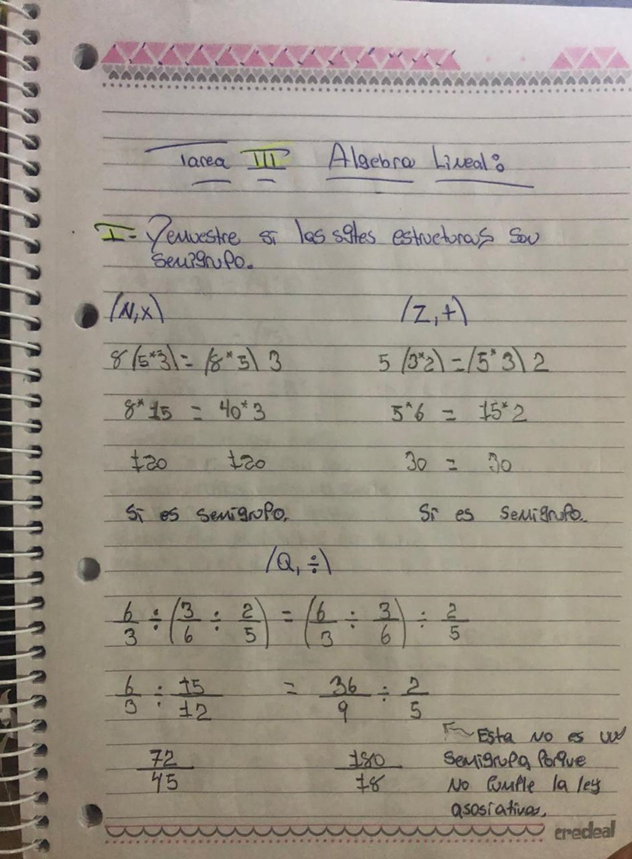 Tarea III Algebra Lineal:
I- Demuestre si las sgtes estructuras son
Semigrupo.
(N,x) (Z,+)
8(5*3) = (8*5) 3 5 (3*2) = (5*3) 2
8*15 = 40*3 5*6 = 15*2
120 120 30 = 30
Si es semigrupo. Si es semigrupo.
(Q, ÷)
6/3 ÷ (3/6 ÷ 2/5) = (6/3 ÷ 3/6) ÷ 2/5
6/3 ÷ 15/12 = 36/9 ÷ 2/5
72/45 180/18
Esta no es un
Semigrupo, Porque
No Cumple la ley
asosiativa.
eredeal